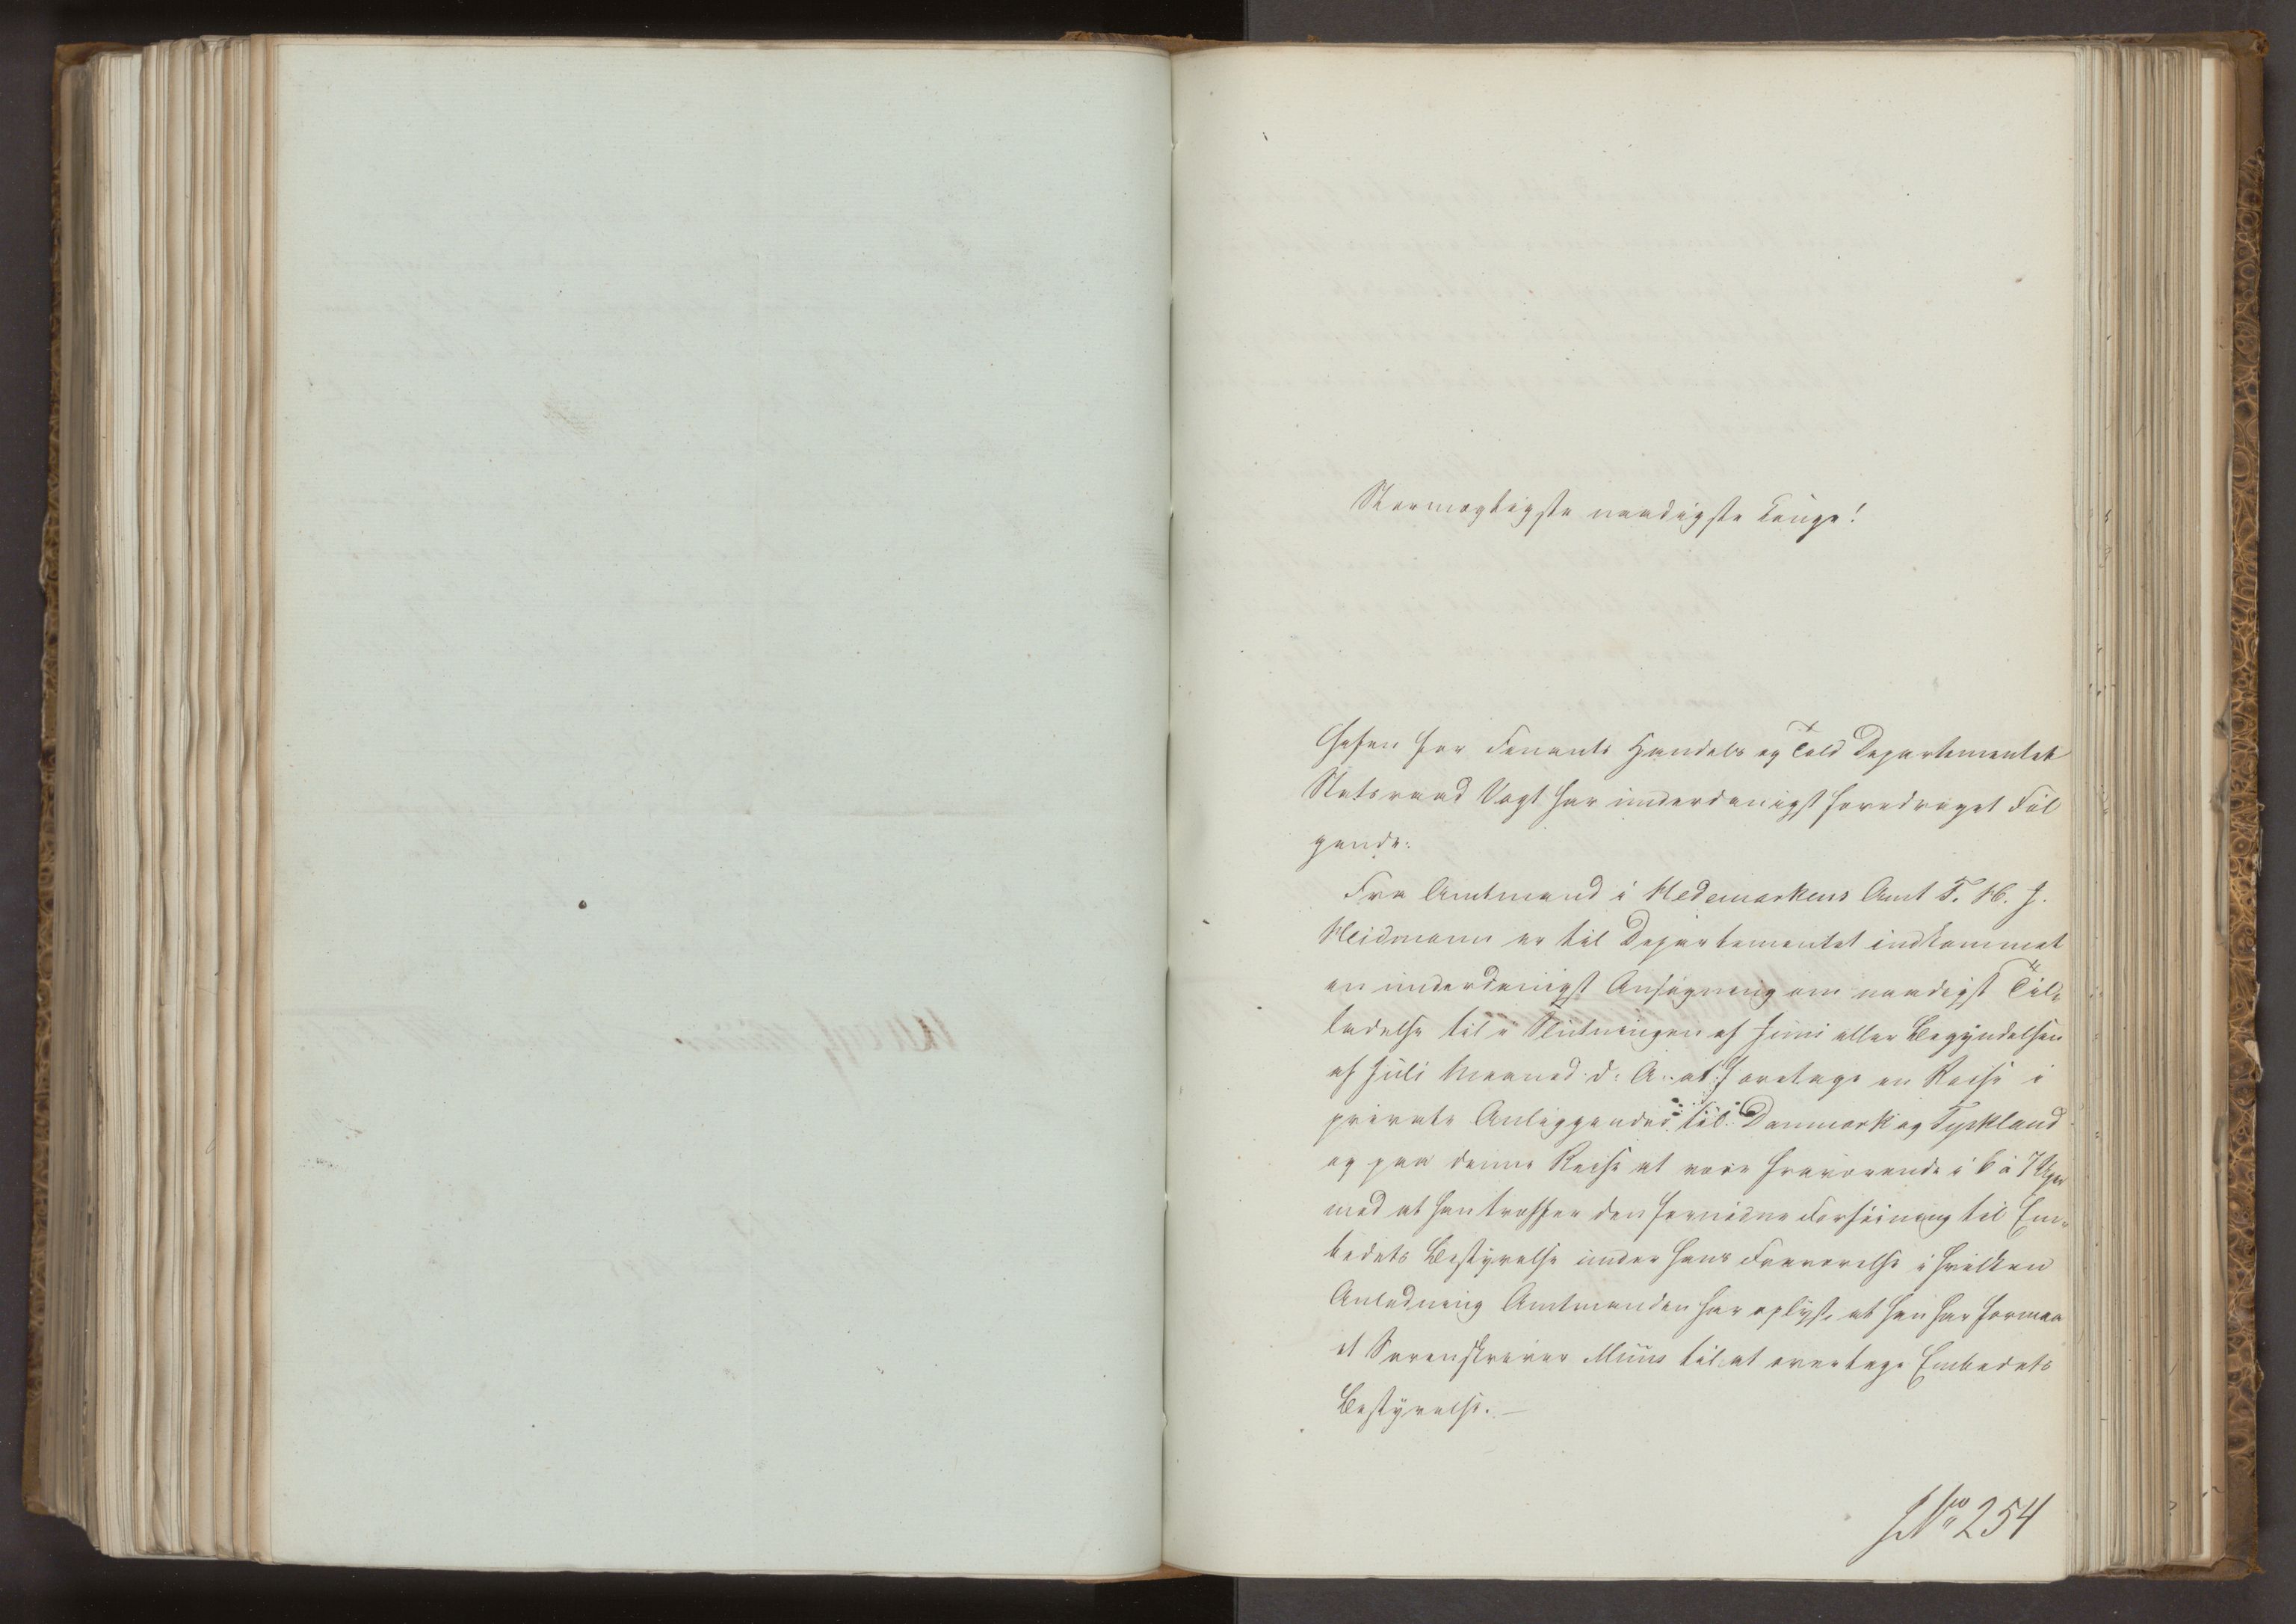 Stormægtigste naadigste Konge!
Chefen for Finants Handels og Told Departementet
Statsraad Vogt har underdanigst foredraget Føl
gende:
Fra Amtmand i Hedemarkens Amt T. H. J.
Heidmann er til Departementet indkommet
en underdanigst Ansøgning om naadigst Til„
ladelse til i Slutningen af Juni eller Begyndelsen
af Juli Maaned d: A: at foretage en Reise i
private Anliggender til Danmark og Tyskland
og paa denne Reise at være fraværende i 6 à 7 Uger
mod at han træffer den fornødne Forføining til Em„
bedets Bestyrelse under hans Fraværelse i hvilken
Anledning Amtmanden har oplyst, at han har formaa
et Sorenskriver Muus til at overtage Embedets
Bestyrelse. —
JNo 254